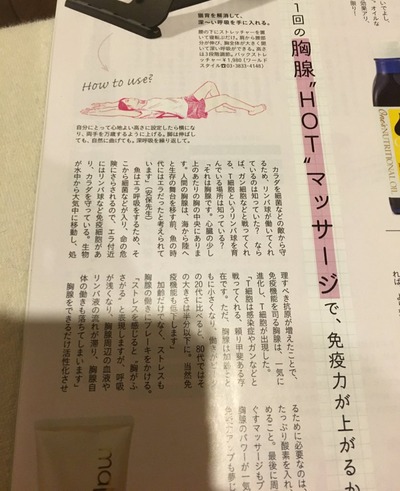 猫背を解消して、
深〜い呼吸を手に入れる。
腰の下にストレッチャーを置
いて寝転ぶだけ。肩から腰部
分が伸び、胸全体が大きく開
いて深い呼吸ができる。高さ
は3段階調節。バックストレ
ッチャー￥1,980（ワールド
How to use?
自分にとって心地よい高さに設定したら横にな
り、両手を万歳するように上げる。脚は伸ばし
ても、自然に曲げても。深呼吸を繰り返して。
1回の胸腺“HOT”マッサージで、免疫力が上がるか
カラダを細菌などの敵から守
るため、リンパ球が働いてくれ
ているのは知っていた？ なら
ば、ガン細胞などと戦ってくれ
る、T細胞というリンパ球を育
んでいる場所は知っている？
「それは胸腺です。心臓の少し
上のあたり、胸の中央にありま
す。人間の胸腺は、海から陸へ
と生存の舞台を移す前、魚の時
代にはエラだったと考えられて
います」（安保先生）
魚はエラ呼吸をするため、そ
こから細菌などが入り、命の危
険にさらされるので、エラ付近
にはリンパ球など免疫細胞があ
り、カラダを守っている。生物
が水中から大気中に移動し、処
理すべき抗原が増えたことで、
免疫機能を司る胸腺は、一気に
進化し、T細胞が出現した。
「T細胞は感染症やガンなどと
戦ってくれる、頼り甲斐ある存
在です。ただ、胸腺は加齢とと
もに小さくなり、働きがピーク
の20代に比べると、80代ではそ
の大きさは半分以下に。当然免
疫機能も低下します」
加齢だけでなく、ストレスも
胸腺の働きにブレーキをかける。
「ストレスを感じると〝胸がふ
さがる〟と表現しますが、呼吸
が浅くなり、胸腺周辺の血液や
リンパ液の流れが滞り、胸腺自
体の働きも落ちてしまいます」
胸腺をできるだけ活性化させ
るために必要なのは、
たっぷり酸素を入れ
めること。最後に周
ぐすマッサージもプ
胸腺のパワーが一気
NUTRITIONAL OIL